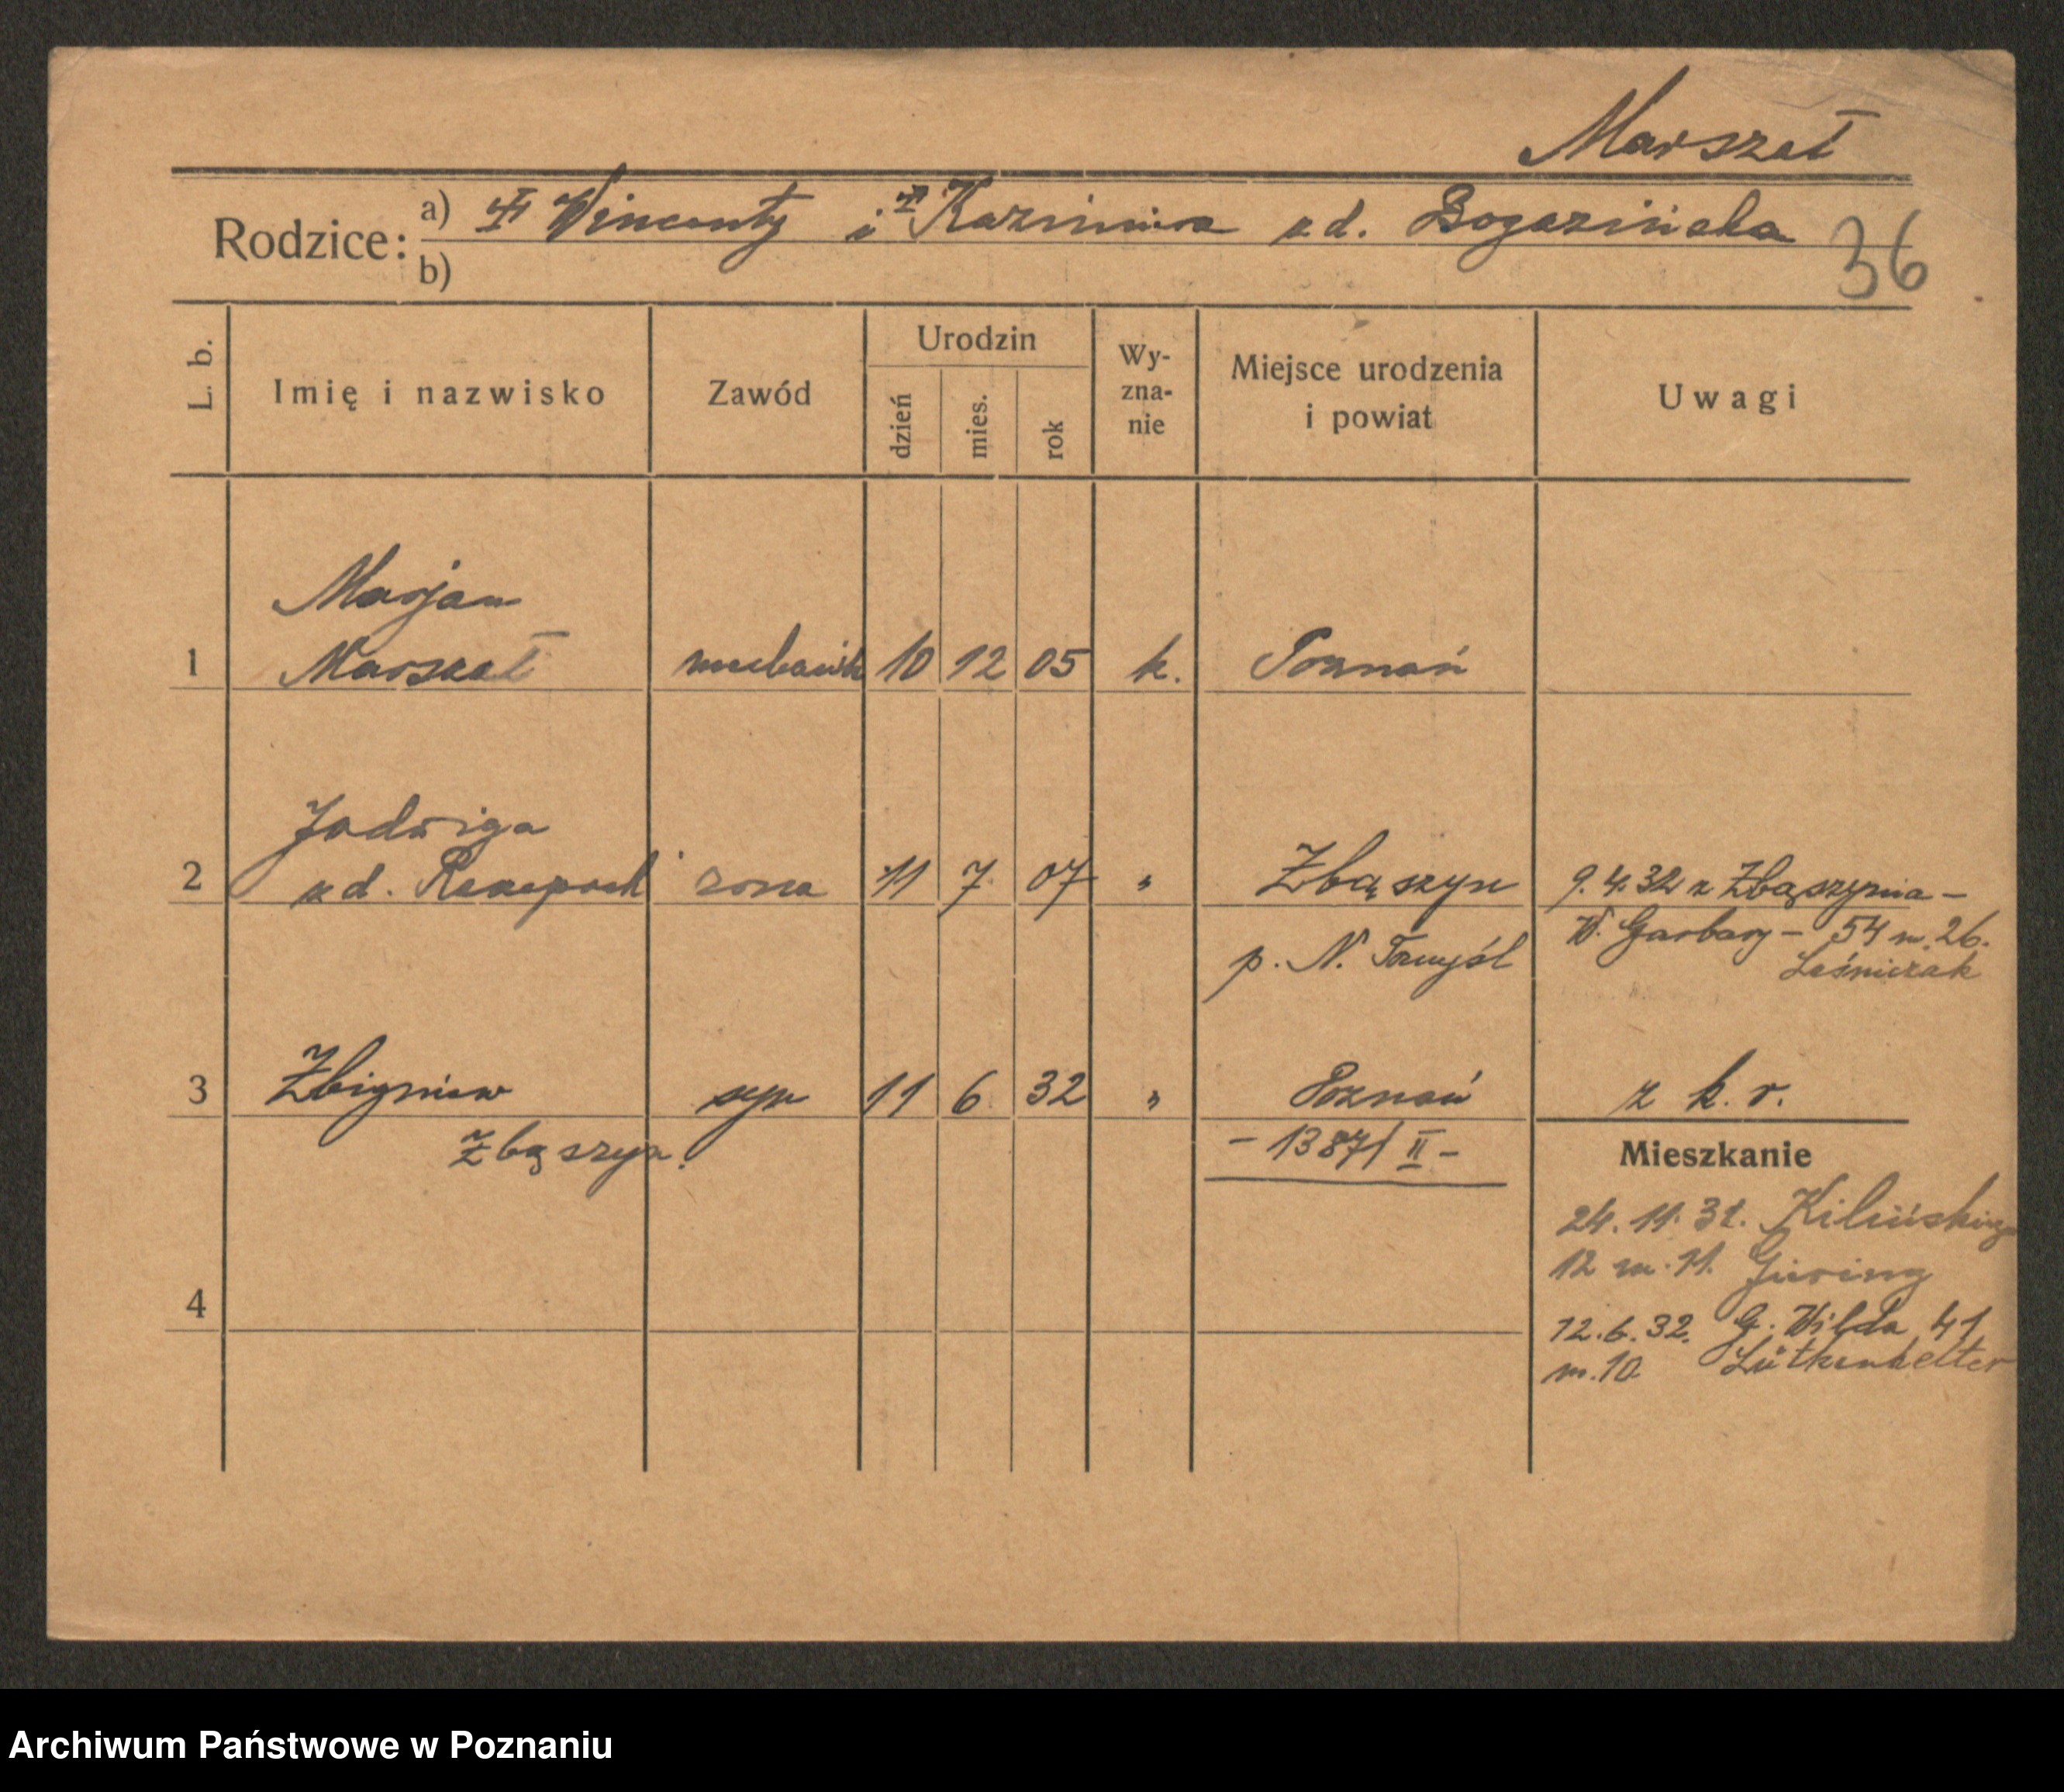 Marszał
Rodzice: a) ‡ Wincenty i ‡ Kazimiera zd. Bogazińska
b)
36
L. b.
Imię i nazwisko
Zawód
Urodzin
dzień
mies.
rok
Wy-
zna-
nie
Miejsce urodzenia
i powiat
Uwagi
Marjan
1 Marszał mechanik 10 12 05 k. Poznań
Jadwiga
2 zd. żona 11 7 07 " Zbąszyn 9.4.32 z Zbąszynia -
p. N. Tomyśl W. Garbary - 54 m. 26.
Leśniczak
3 Zbigniew syn 11 6 32 " Poznań z k. r.
Zbąszyn. - 1387/II -
Mieszkanie
24. 11. 31. Kilińskiego
12 m. 11. Giering
4
12.6.32. G. Wilda 41
m. 10